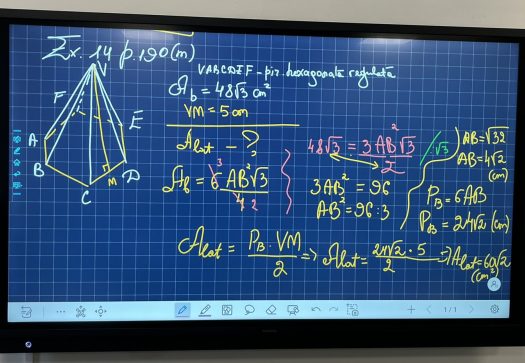 Ex. 14 p.190 (m)
VABCDEF - pir. hexagonată regulată
A_b = 48√3 cm²
VM = 5 cm
A_lat - ?
A_b = 6³ AB²√3 / 4 2
48√3 = 3AB²√3 / 2 | :√3
3AB² = 96
AB² = 96 : 3
AB = √32
AB = 4√2 (cm)
P_B = 6AB
P_B = 24√2 (cm)
A_lat = P_B · VM / 2 => A_lat = 24√2 · 5 / 2 => A_lat = 60√2 (cm²)
V
F
E
A
B
C
M
D
1/1